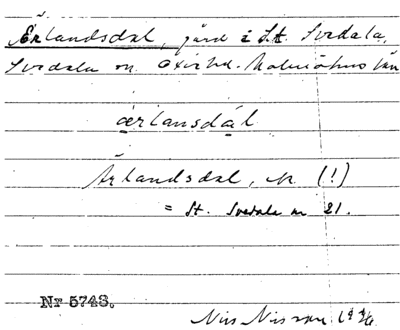 Ärlandsdal, gård i St. Svedala,
Svedala sn. Oxie hd. Malmöhus län
ærlansdál
Ärlandsdal, (!)
= St. Svedala nr 21.
Nr 5748.
Nils Nilsson